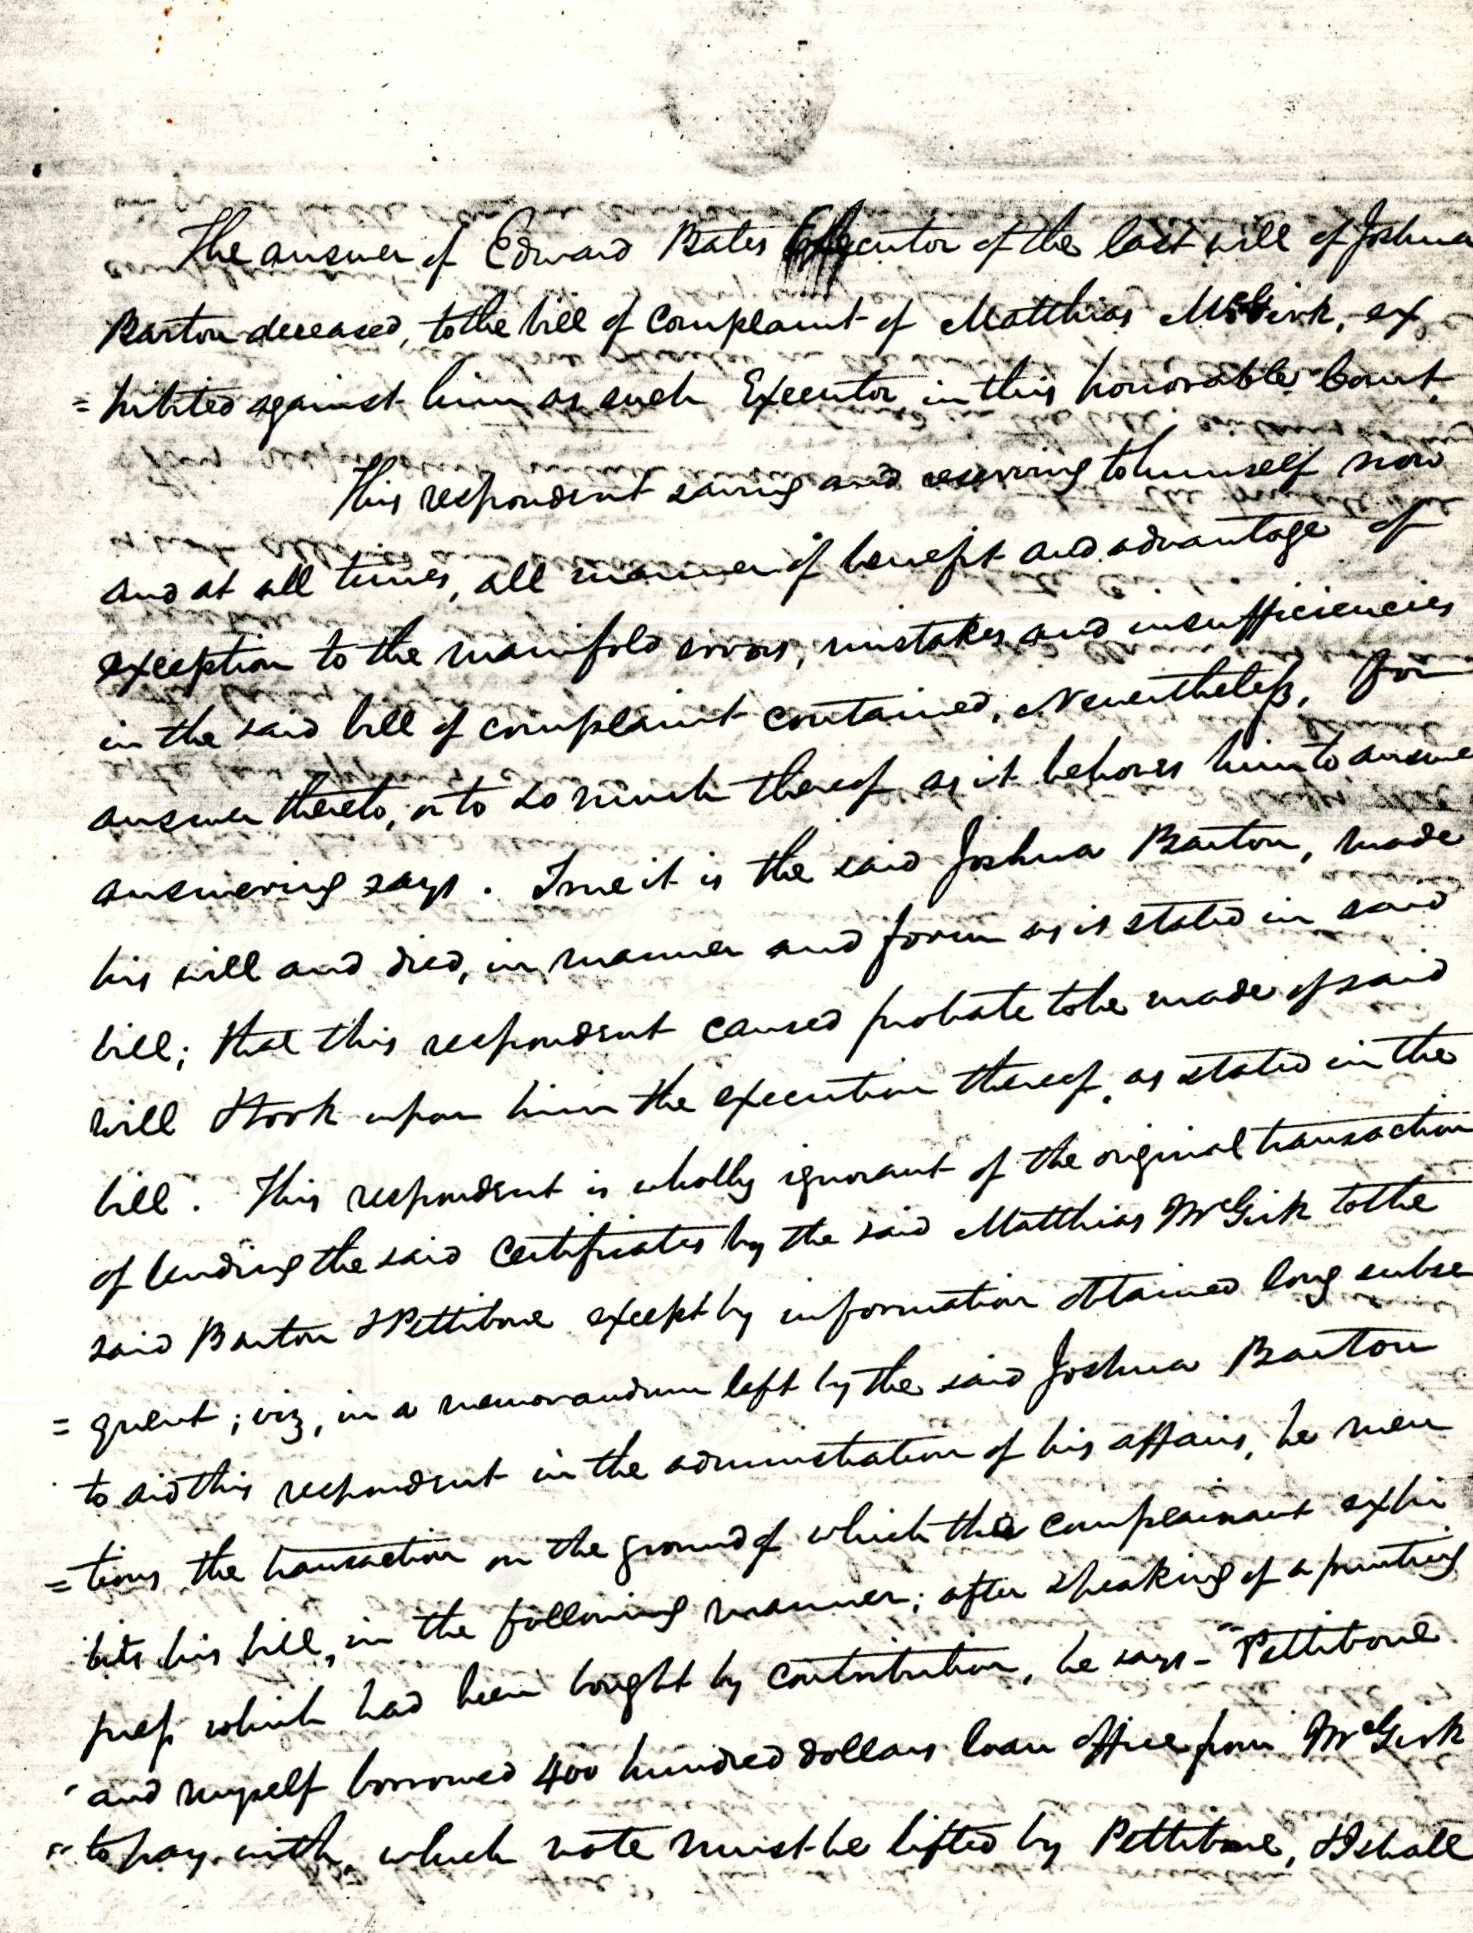 The answer of Edward Bates Executor of the last will of Joshua
Barton deceased, to the bill of complaint of Matthias McGirk, ex
= hibited against him as such Executor in this honorable Court.
This respondent saving and reserving to himself now
and at all times, all manner of benefit and advantage of
exception to the manifold errors, mistakes and insufficiencies
in the said bill of complaint contained, Nevertheless, for
answer thereto, or to so much thereof as it behoves him to answer
answering says. True it is the said Joshua Barton, made
his will and died, in manner and form as is stated in said
bill; that this respondent caused probate to be made of said
will & took upon him the execution thereof, as stated in the
bill. This respondent is wholly ignorant of the original transaction
of lending the said certificates by the said Matthias McGirk to the
said Barton & Pettibone except by information obtained long subse
= quent; viz, in a memorandum left by the said Joshua Barton
to aid this respondent in the administration of his affairs, he men
= tions the transaction on the ground of which the complainant exhi
bits his bill, in the following manner; after speaking of a printing
press which had been bought by contribution, he says - "Pettibone
" and myself borrowed 400 hundred dollars loan office from McGirk
" to pay with, which note must be lifted by Pettibone, & I shall